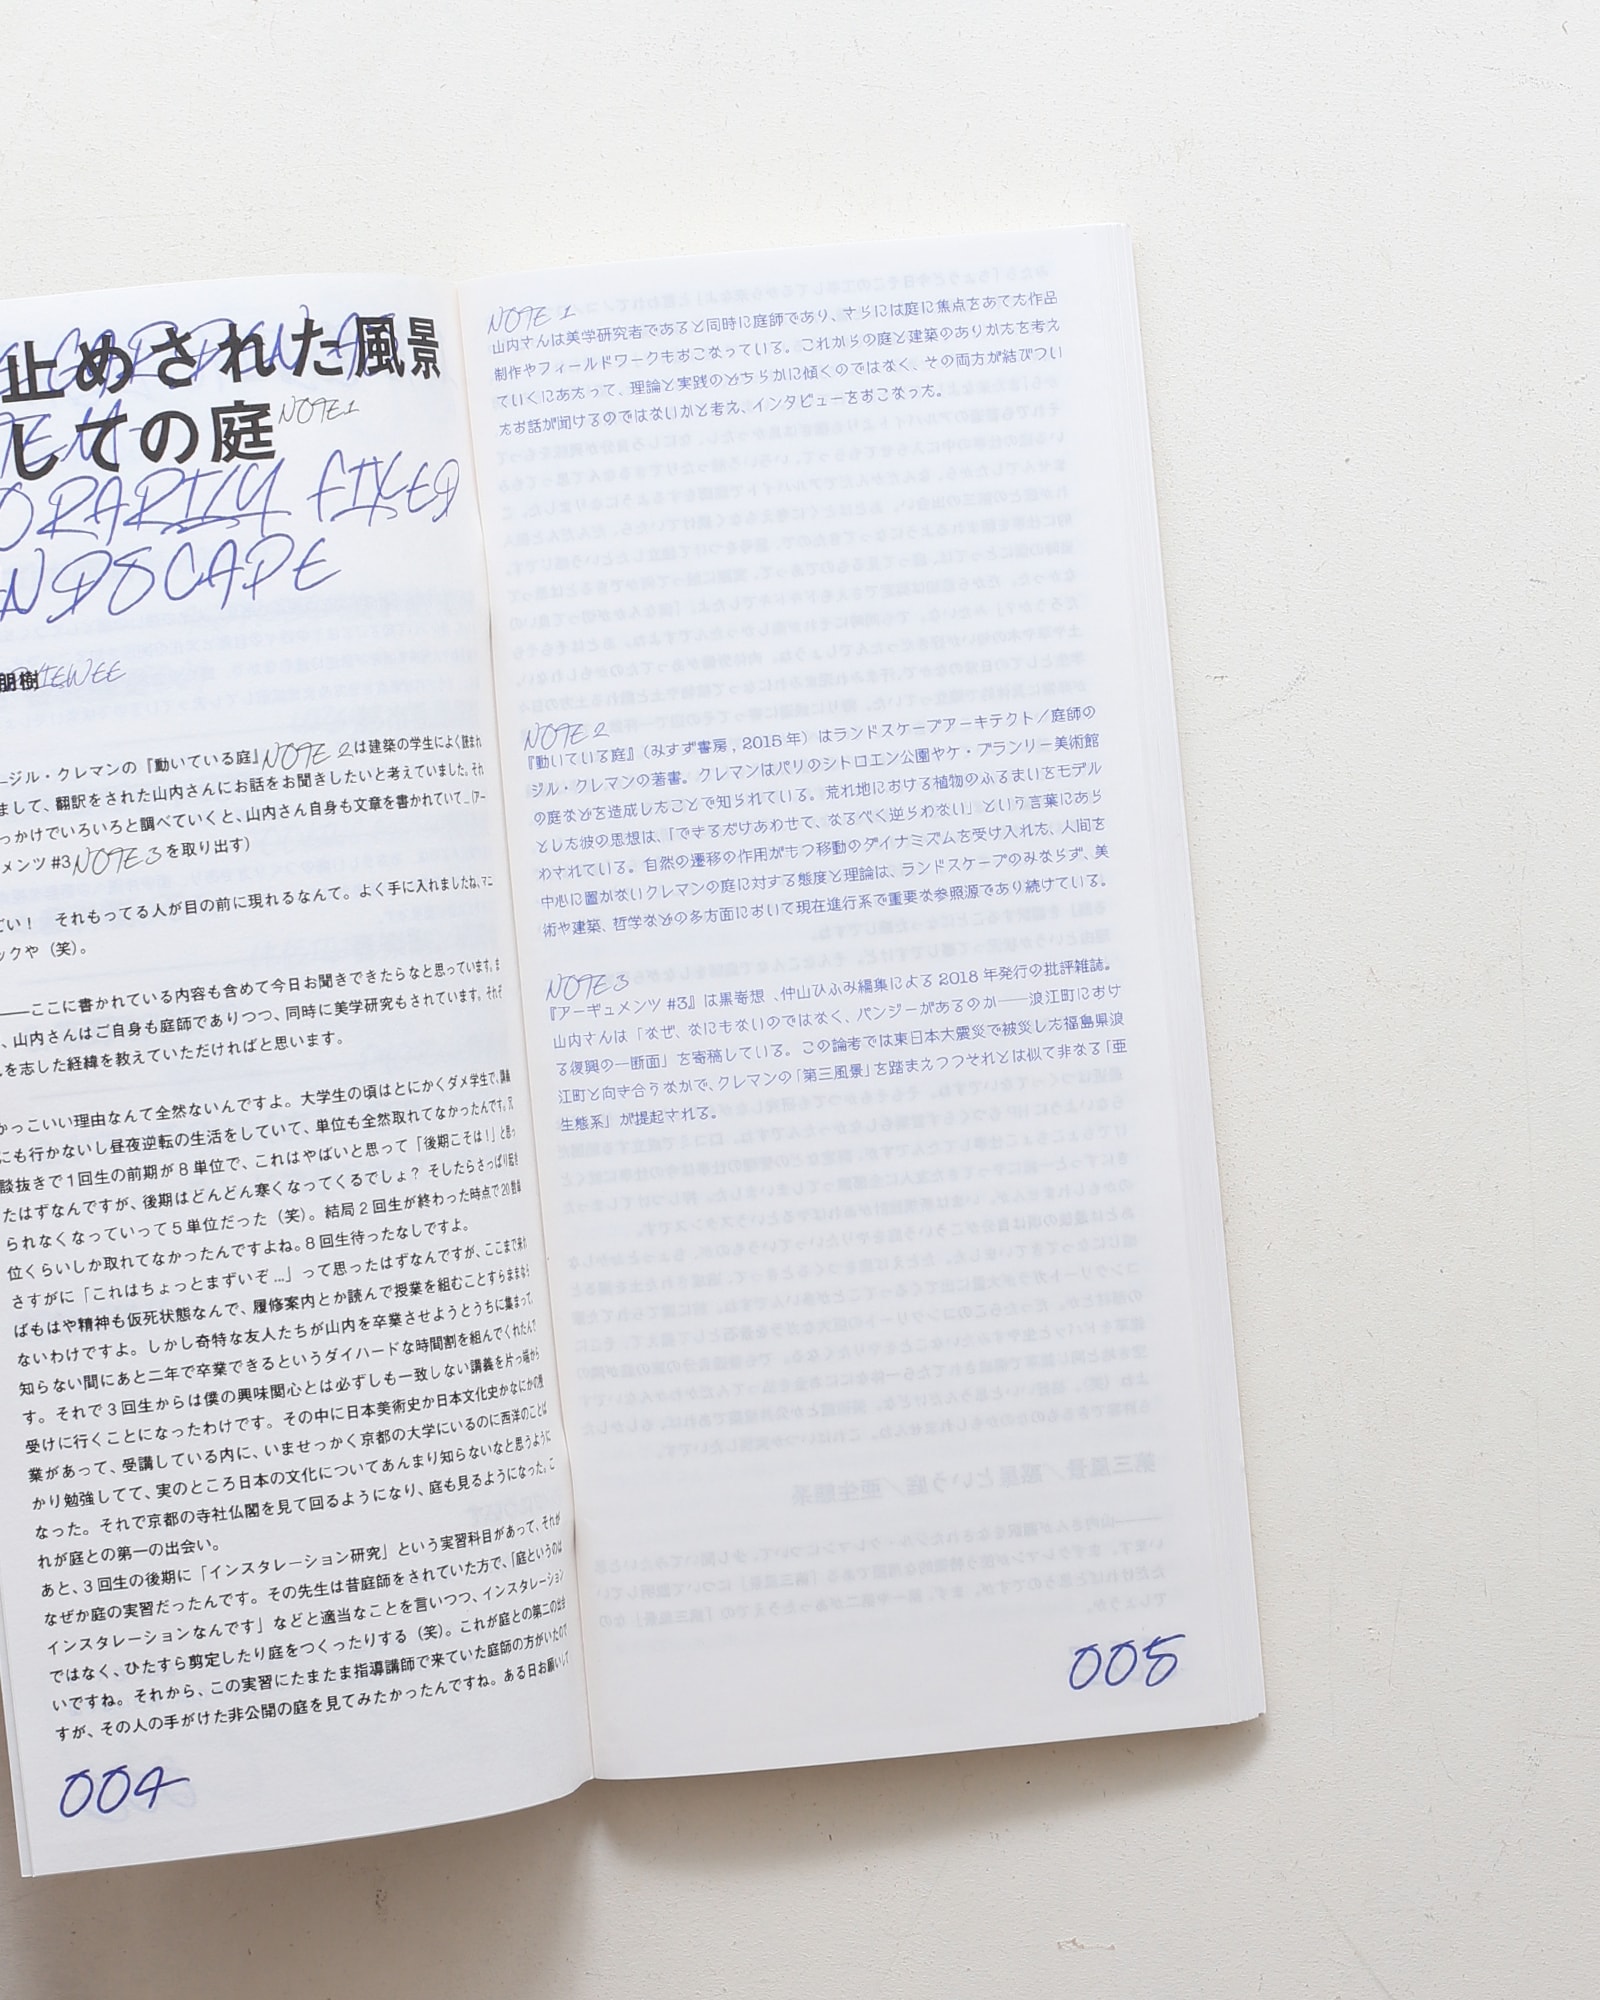 止めされた風景
しての庭 NOTE 1
GARDEN AS
TEM
ORARILY FIXED
NDSCAPE
朋樹
VIEWEE
ージル・クレマンの『動いている庭』NOTE 2は建築の学生によく読まれ
まして、翻訳をされた山内さんにお話をお聞きしたいと考えていました。それ
っかけでいろいろと調べていくと、山内さん自身も文章を書かれていて…（アー
メンツ #3 NOTE 3を取り出す）
ごい！　それもってる人が目の前に現れるなんて。よく手に入れましたね、マニ
ックや（笑）。
――ここに書かれている内容も含めて今日お聞きできたらなと思っています。ま
、山内さんはご自身も庭師でありつつ、同時に美学研究もされています。それぞ
を志した経緯を教えていただければと思います。
かっこいい理由なんて全然ないんですよ。大学生の頃はとにかくダメ学生で、講義
にも行かないし昼夜逆転の生活をしていて、単位も全然取れてなかったんです。冗
談抜きで1回生の前期が8単位で、これはやばいと思って「後期こそは！」と思っ
たはずなんですが、後期はどんどん寒くなってくるでしょ？ そしたらさっぱり起き
られなくなっていって5単位だった（笑）。結局2回生が終わった時点で20数単
位くらいしか取れてなかったんですよね。8回生待ったなしですよ。
さすがに「これはちょっとまずいぞ…」って思ったはずなんですが、ここまで来れ
ばもはや精神も仮死状態なんで、履修案内とか読んで授業を組むことすらままなら
ないわけですよ。しかし奇特な友人たちが山内を卒業させようとうちに集まって、
知らない間にあと二年で卒業できるというダイハードな時間割を組んでくれたんで
す。それで3回生からは僕の興味関心とは必ずしも一致しない講義を片っ端から
受けに行くことになったわけです。その中に日本美術史か日本文化史かなにかの授
業があって、受講している内に、いませっかく京都の大学にいるのに西洋のことば
かり勉強してて、実のところ日本の文化についてあんまり知らないなと思うように
なった。それで京都の寺社仏閣を見て回るようになり、庭も見るようになった。こ
れが庭との第一の出会い。
あと、3回生の後期に「インスタレーション研究」という実習科目があって、それが
なぜか庭の実習だったんです。その先生は昔庭師をされていた方で、「庭というのは
インスタレーションなんです」などと適当なことを言いつつ、インスタレーション
ではなく、ひたすら剪定したり庭をつくったりする（笑）。これが庭との第二の出会
いですね。それから、この実習にたまたま指導講師で来ていた庭師の方がいたので
すが、その人の手がけた非公開の庭を見てみたかったんですね。ある日お願いして
004
NOTE 1
山内さんは美学研究者であると同時に庭師であり、さらには庭に焦点をあてた作品
制作やフィールドワークもおこなっている。これからの庭と建築のありかたを考え
ていくにあたって、理論と実践のどちらかに傾くのではなく、その両方が結びつい
たお話が聞けるのではないかと考え、インタビューをおこなった。
NOTE 2
『動いている庭』（みすず書房, 2015年）はランドスケープアーキテクト／庭師の
ジル・クレマンの著書。クレマンはパリのシトロエン公園やケ・ブランリー美術館
の庭などを造成したことで知られている。荒れ地における植物のふるまいをモデル
とした彼の思想は、「できるだけあわせて、なるべく逆らわない」という言葉にあら
わされている。自然の遷移の作用がもつ移動のダイナミズムを受け入れた、人間を
中心に置かないクレマンの庭に対する態度と理論は、ランドスケープのみならず、美
術や建築、哲学などの多方面において現在進行系で重要な参照源であり続けている。
NOTE 3
『アーギュメンツ #3』は黒嵜想、仲山ひふみ編集による2018年発行の批評雑誌。
山内さんは「なぜ、なにもないのではなく、パンジーがあるのか――浪江町におけ
る復興の一断面」を寄稿している。この論考では東日本大震災で被災した福島県浪
江町と向き合うなかで、クレマンの「第三風景」を踏まえつつそれとは似て非なる「亜
生態系」が提起される。
005